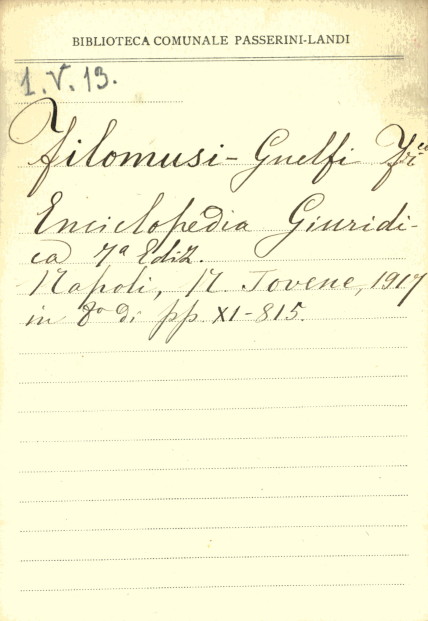 BIBLIOTECA COMUNALE PASSERINI-LANDI
1.V.13.
Filomusi-Guelfi Fr.co
Enciclopedia Giuridi-
ca 7ª Ediz.
Napoli, N. Jovene, 1917
in 8° di pp. XI-815.